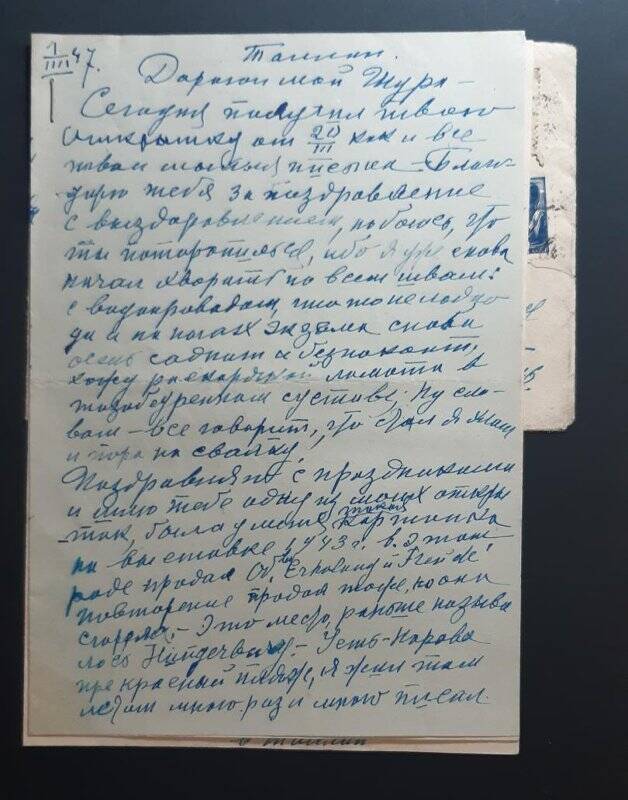 1/IIII 47.
Таллин.
Дорогой мой Шура –
Сегодня получил твою
открытку от 20/III как и все
твои милыя письма – Благо-
дарю тебя за поздравление
с выздоровлением, но боюсь, что
ты поторопился, ибо я уже снова
начал хворать по всем швам:
с водопроводом, что то не ладно
да и на ногах экзема снова
очень саднит и безпокоит,
хожу ломота в
тазобедренном суставе. Ну сло-
вом – все говорит, что стал я хлам
и пора на свалку!
Поздравляю с праздниками
и шлю тебе одну из моих откры
ток, была у меня такая картина
на выставке в 43 г. в этом
роде продал "Erholung u Freude"
повторение продал тоже, но они
сгорели. – Это место, раньше называ
лось – Усть-Нарова
прекрасный пляж, я жил там
летом много раз и много писал.
в Таллин